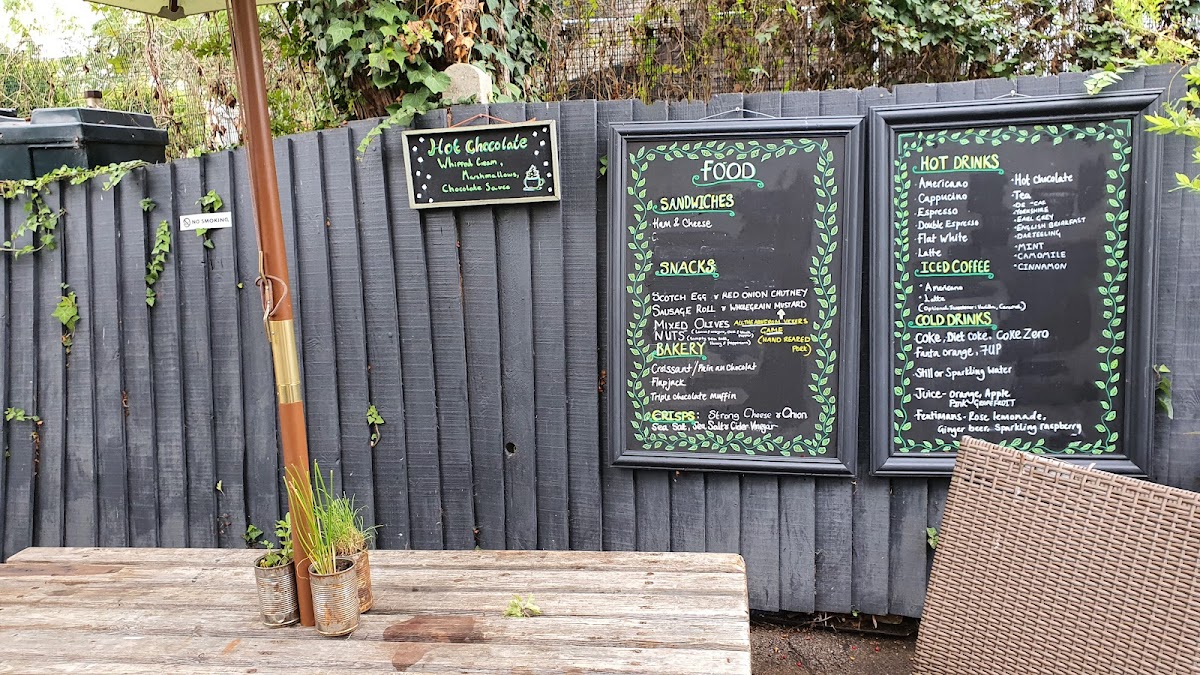 Hot Chocolate
Whipped Cream,
Marshmallows,
Chocolate Sauce
NO SMOKING
FOOD
SANDWICHES
Ham & Cheese
SNACKS
SCOTCH EGG & RED ONION CHUTNEY
SAUSAGE ROLL & WHOLEGRAIN MUSTARD
MIXED OLIVES
NUTS
GAME
(HAND REARED
PORK)
BAKERY
Croissant/Pain au Chocolat
Flapjack
Triple chocolate muffin
CRISPS: Strong Cheese & Onion
Sea Salt, Sea Salt & Cider Vinegar
HOT DRINKS
- Americano
- Cappucino
- Espresso
- Double Espresso
- Flat White
- Latte
- Hot chocolate
- Tea
- DE-CAF
- YORKSHIRE
- EARL GREY
- ENGLISH BREAKFAST
- DARJEELING
- MINT
- CAMOMILE
- CINNAMON
ICED COFFEE
- Americano
- Latte
(Optional Sweeteners: Vanilla, Caramel)
COLD DRINKS
Coke, Diet coke, Coke Zero
Fanta orange, 7UP
Still or Sparkling Water
Juice - orange, Apple
Pink Grapefruit
Fentimans - Rose lemonade,
Ginger beer, Sparkling raspberry